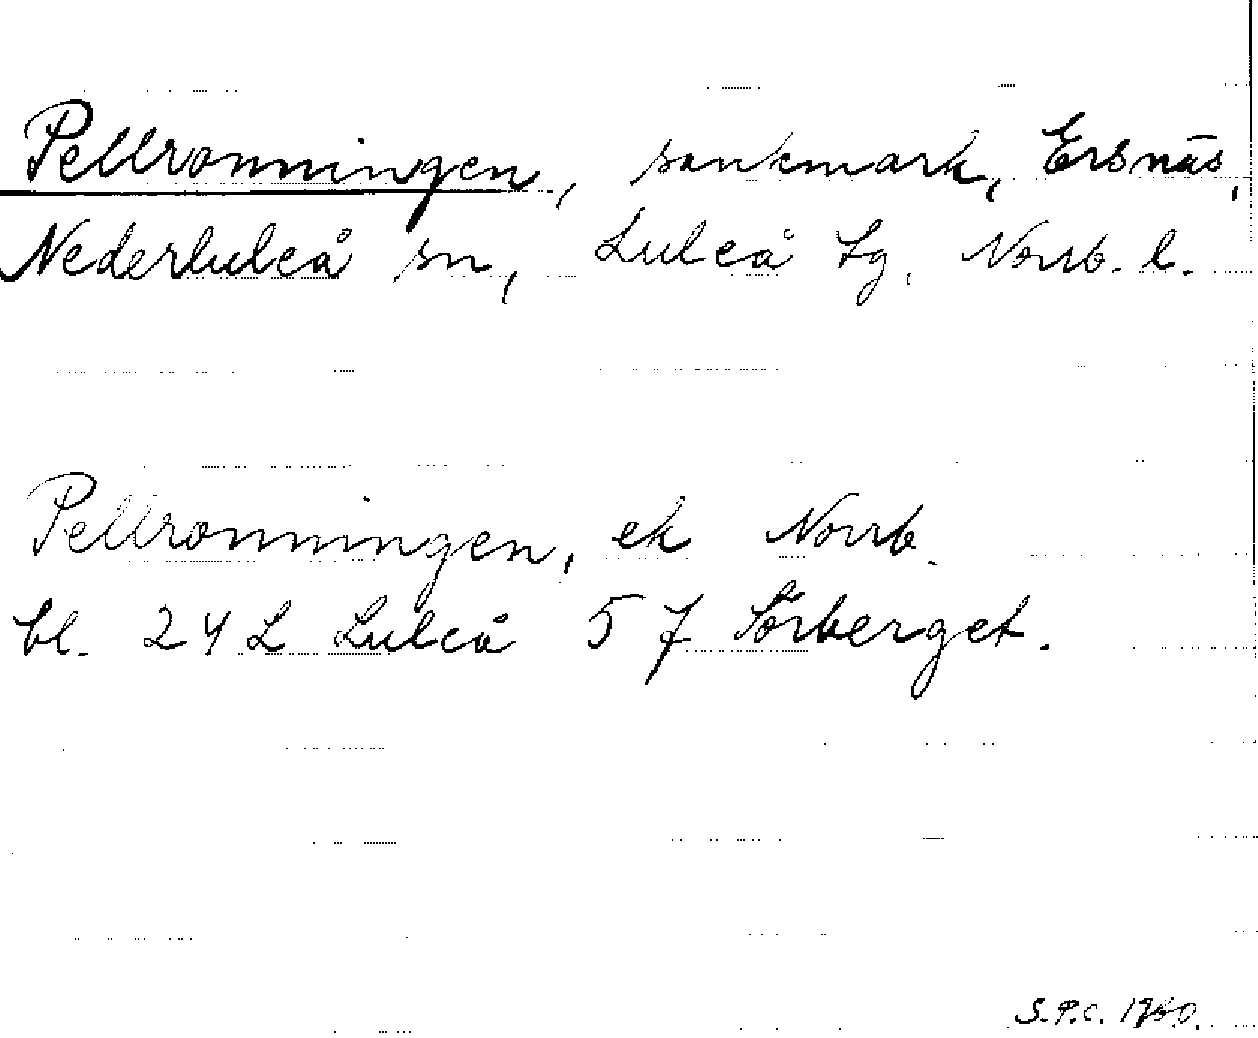 Pellronningen, sankmark, Ersnäs,
Nederluleå sn, Luleå tg. Norrb. l.
Pellronningen, ek Norrb.
bl. 24 L Luleå 5 f Sörberget.
S.P.C. 1960.